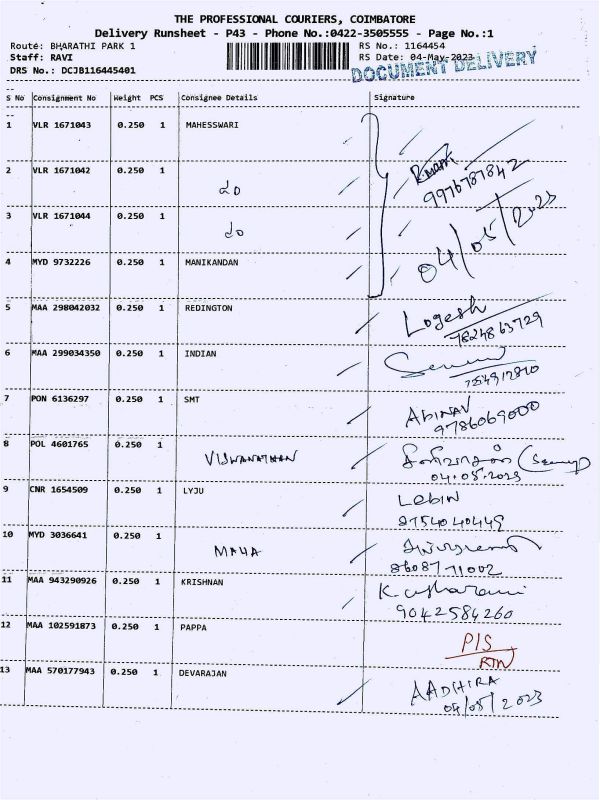 THE PROFESSIONAL COURIERS, COIMBATORE
Delivery Runsheet - P43 - Phone No.:0422-3505555 - Page No.:1
Route: BHARATHI PARK 1 RS No.: 1164454
Staff: RAVI RS Date: 04-May-2023
DRS No.: DCJB116445401
DOCUMENT DELIVERY
S No Consignment No Weight PCS Consignee Details Signature
1 VLR 1671043 0.250 1 MAHESSWARI
2 VLR 1671042 0.250 1
9976787842
3 VLR 1671044 0.250 1
04/05/2023
4 MYD 9732226 0.250 1 MANIKANDAN
5 MAA 298042032 0.250 1 REDINGTON Logesh
7824863729
6 MAA 299034350 0.250 1 INDIAN
7 PON 6136297 0.250 1 SMT ABINAV
9786069000
8 POL 4601765 0.250 1 VISWANATHAN
04.05.2023
9 CNR 1654509 0.250 1 LYJU LEBIN
8754040449
10 MYD 3036641 0.250 1 MAHA
8608771002
11 MAA 943290926 0.250 1 KRISHNAN
9042584260
12 MAA 102591873 0.250 1 PAPPA P/S
RTN
13 MAA 570177943 0.250 1 DEVARAJAN AADHIRA
04/05/2023